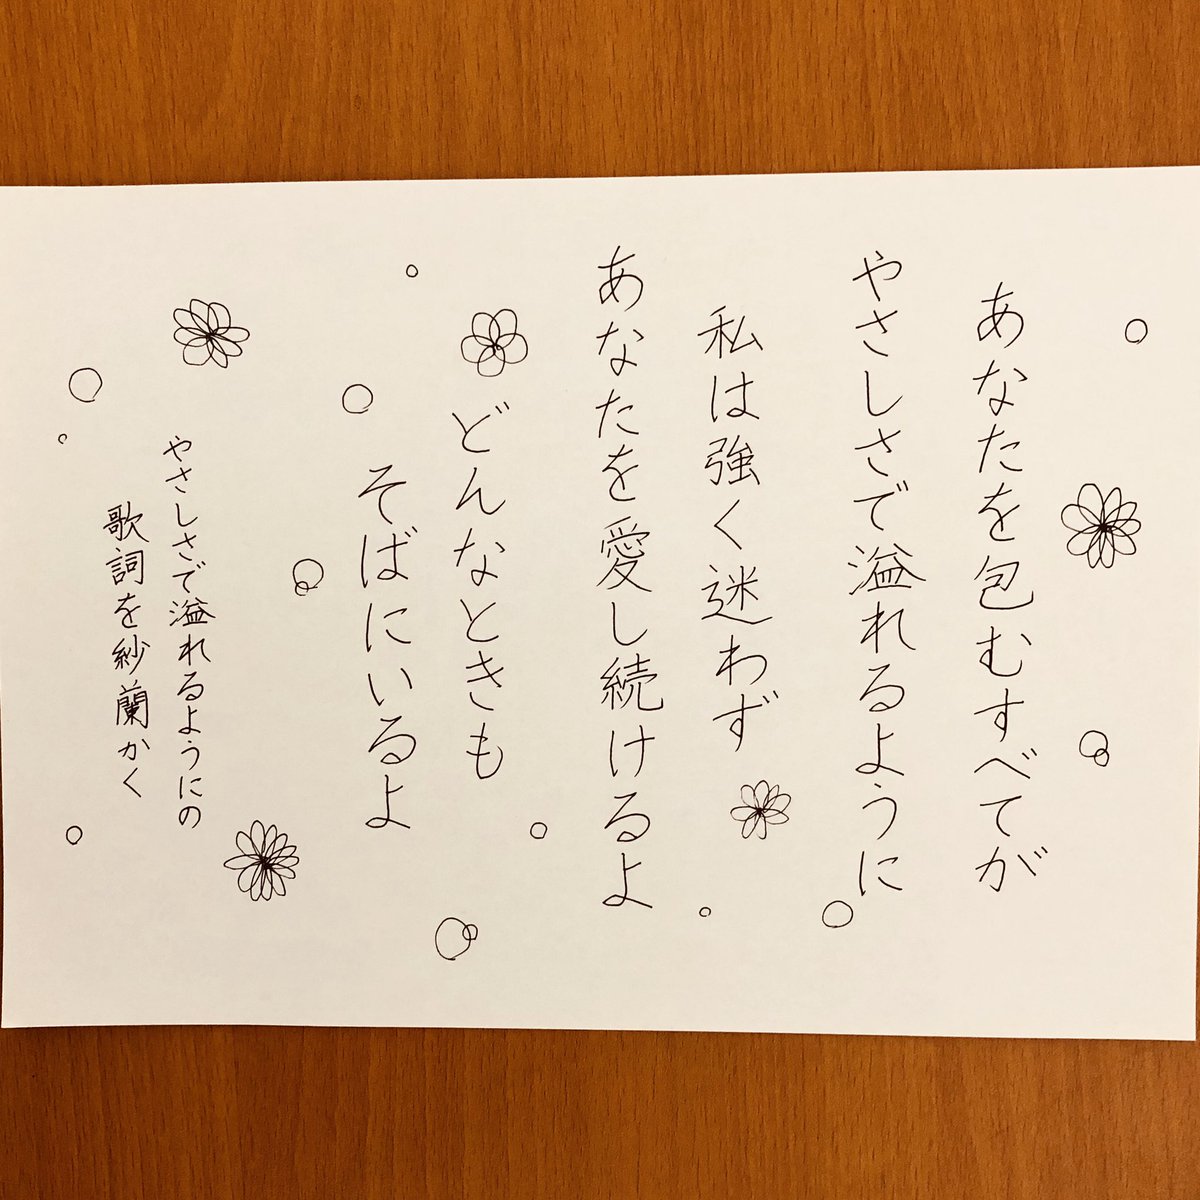 あなたを包むすべてが
やさしさで溢れるように
私は強く迷わず
あなたを愛し続けるよ
どんなときも
そばにいるよ
やさしさで溢れるようにの
歌詞を紗蘭かく